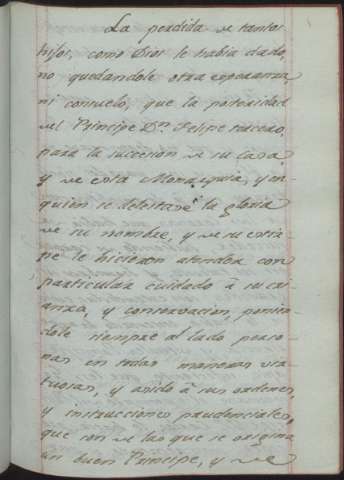 La perdida de tantos
hijos, como Dios le habia dado,
no quedandole otra esperanza,
ni consuelo, que la posteridad
del Principe Dn. Felipe tercero,
para la succesion de su casa
y de esta Monarquia, y en
quien se deleitase la gloria
de su nombre, y de su estir
pe le hicieron atender con
particular cuidado â su cri
anza, y conservacion, ponien
dole siempre al lado perso
nas en todas maneras vir
tuosas, y asido â sus ordenes,
y instrucciones prudenciales,
que son de las que se origina
un buen Principe, y de